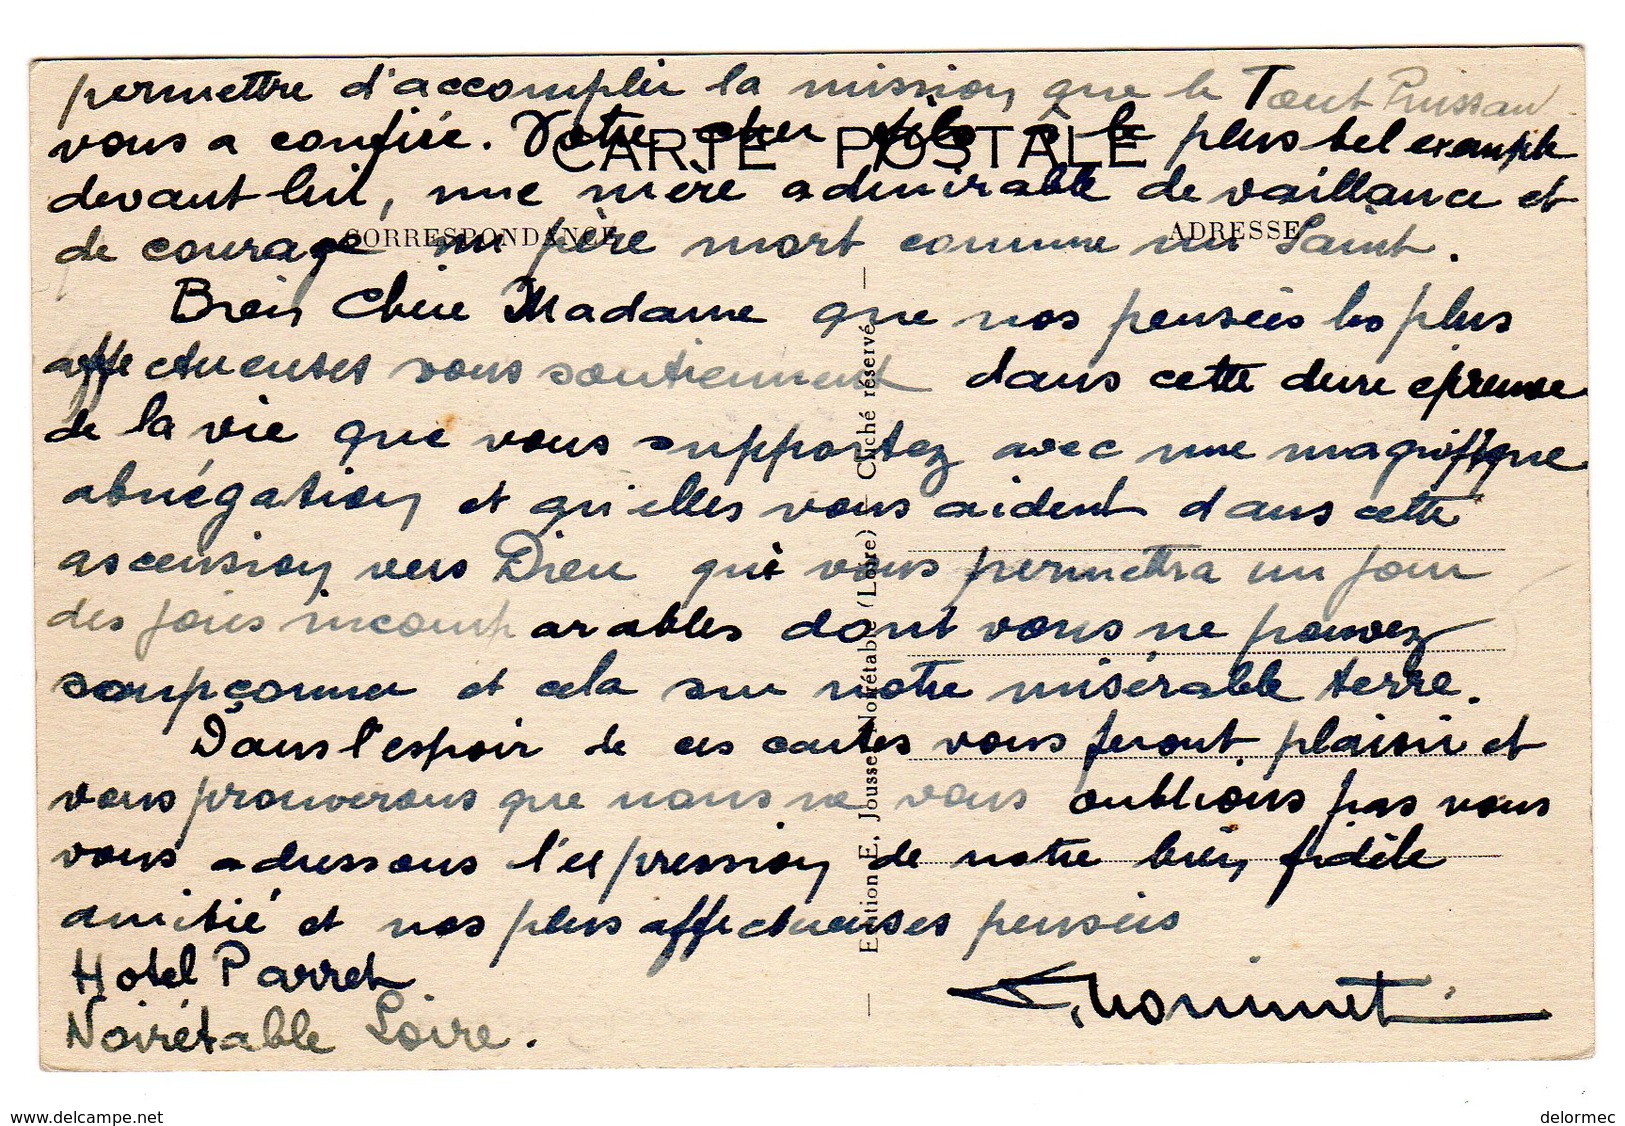 permettre d'accomplir la mission que le Tout Puissant
vous a confiée. Votre cher fils a le plus bel exemple
CARTE POSTALE
devant lui, une mère admirable de vaillance et
de courage un père mort comme un Saint.
CORRESPONDANCE
ADRESSE
Bien Chère Madame que nos pensées les plus
affectueuses vous soutiennent dans cette dure épreuve
de la vie que vous supportez avec une magnifique
abnégation et qu'elles vous aident dans cette
ascension vers Dieu qui vous permettra un jour
des joies incomparables dont vous ne pouvez
soupçonner et cela sur notre misérable terre.
Dans l'espoir de ces cartes vous feront plaisir et
vous prouverons que nous ne vous oublions pas vous
vous adressons l'expression de notre bien fidèle
amitié et nos plus affectueuses pensées
Hotel Parret
Noirétable Loire.
Edition E. Jousse, Noirétable (Loire) — Cliché réservé
www.delcampe.net
delormec